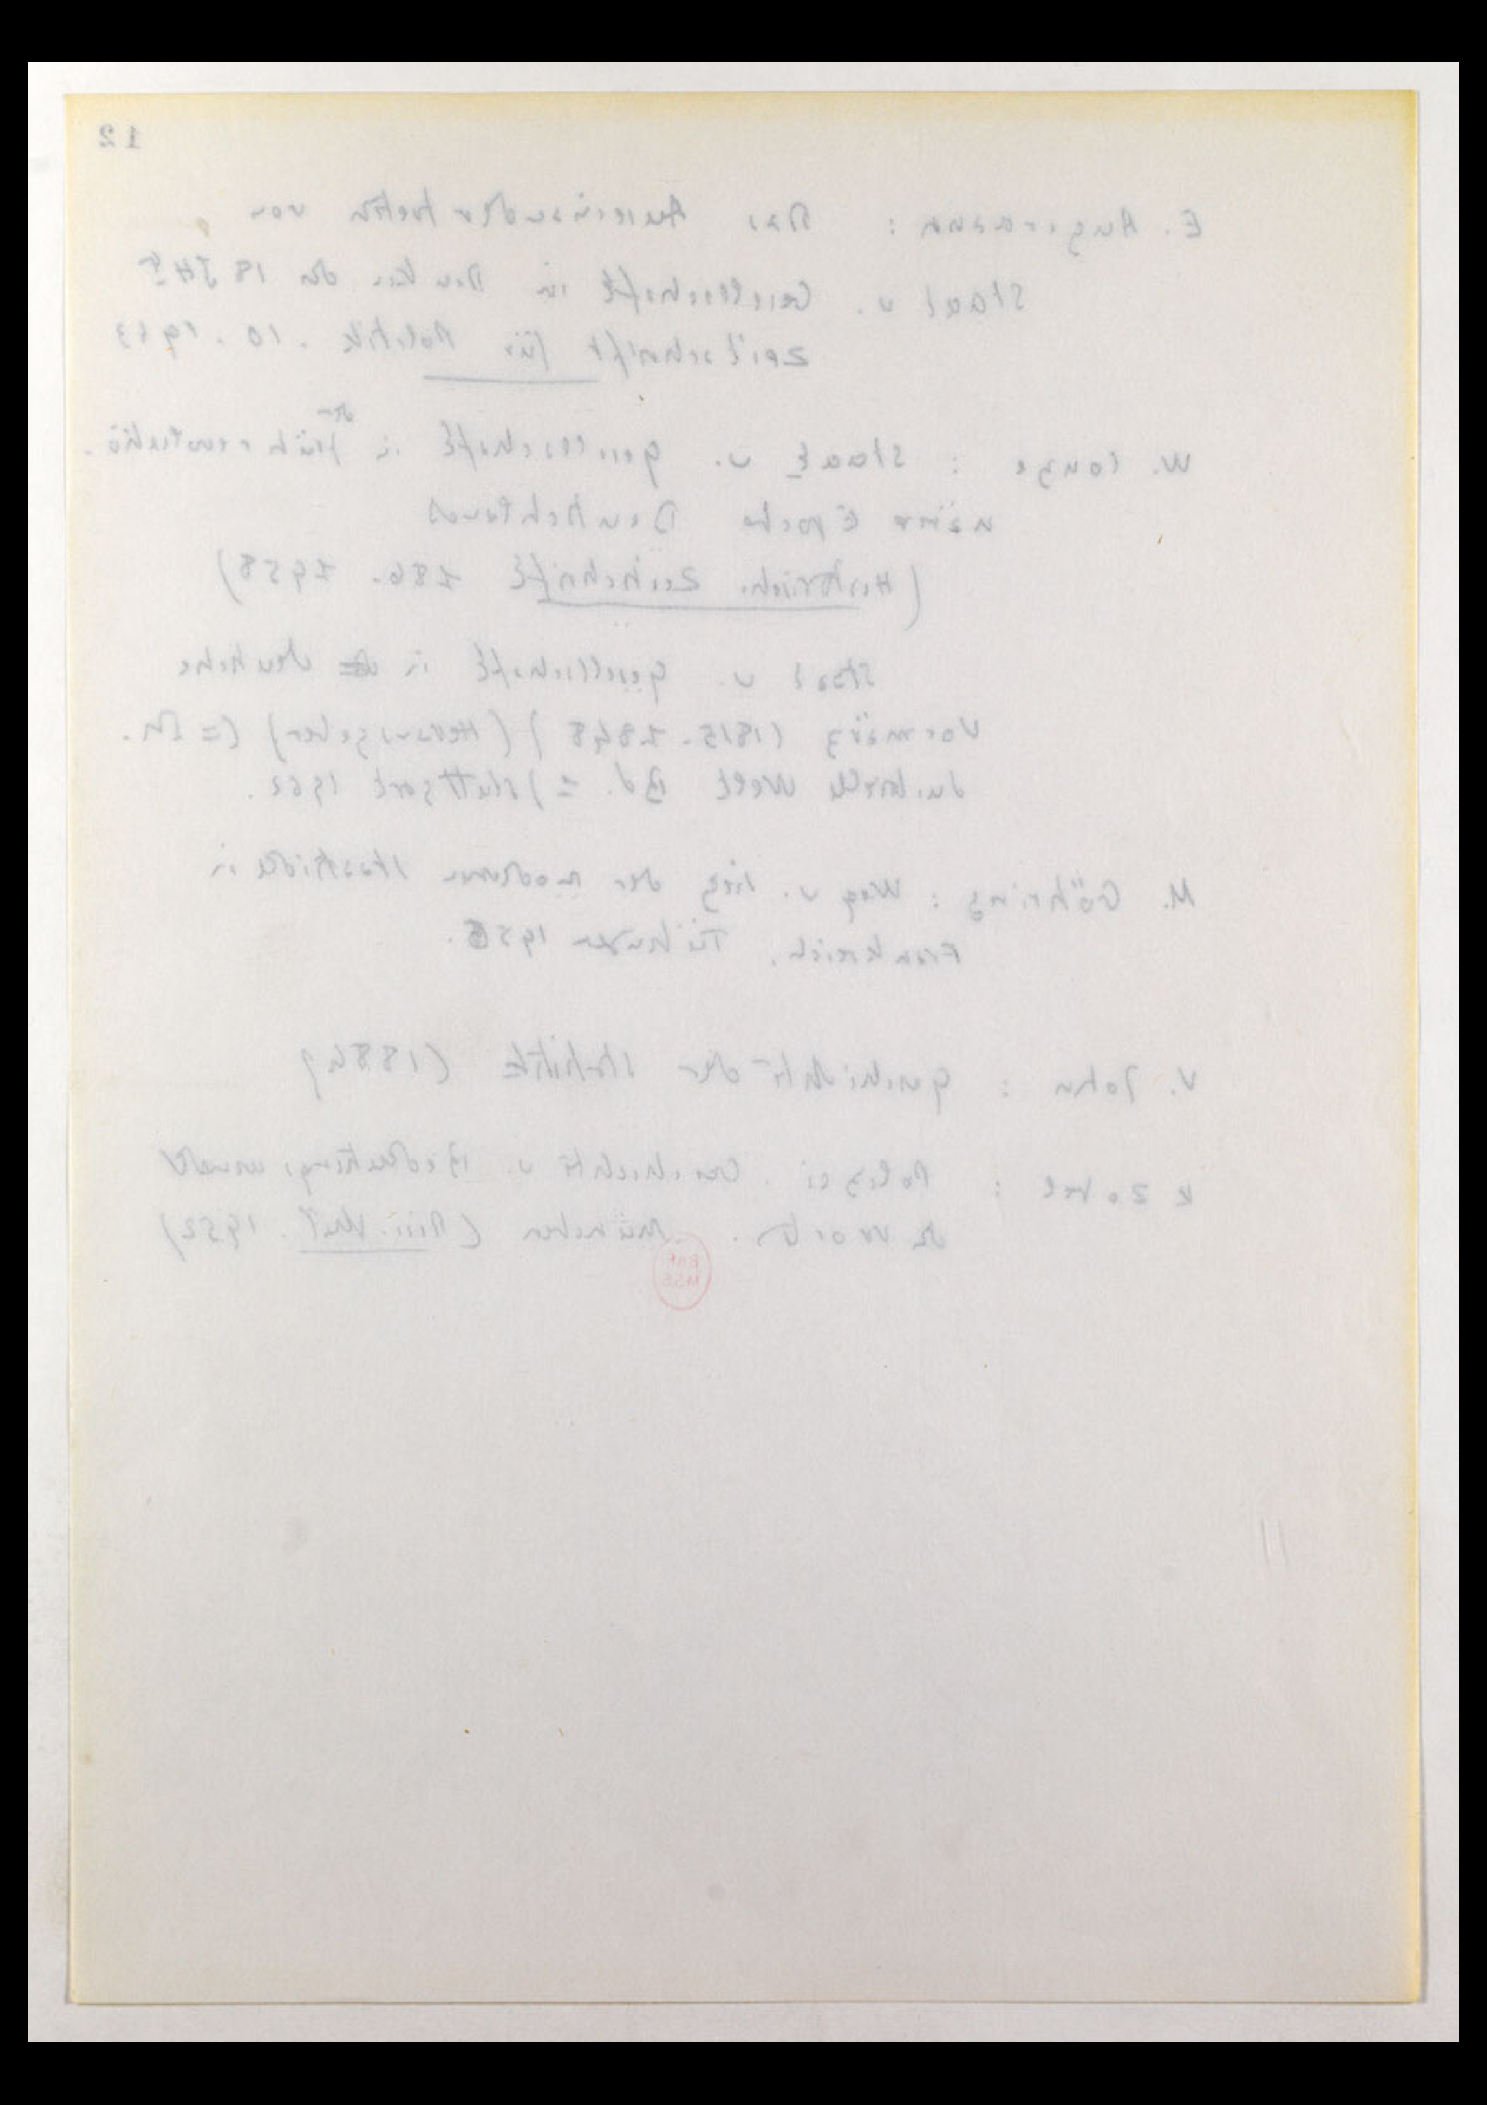 12
E. Angermann : Das Auseinandertreten von
Staat u. Gesellschaft im Denken des 18 JHts
Zeitschrift für Politik. 10. 1963
W. Conze : Staat u. Gesellschaft in der frührevolutio-
närer Epoche Deutschlands
(Historische Zeitschrift 186. 1958)
Staat u. Gesellschaft in deutsche
Vormärz (1815-1848) (Herausgeber) (=
Welt Bd. =) Stuttgart 1962.
M. Göhring : Weg u. Sieg der modernen Staatsidee in
Frankreich. Tübingen 195
V. John : Geschichte der Statistik (1884)
K Zobel : Polizei. Geschichte u. Bedeutungswandel
des Worts. München (Diss. 1952)
BnF
MSS